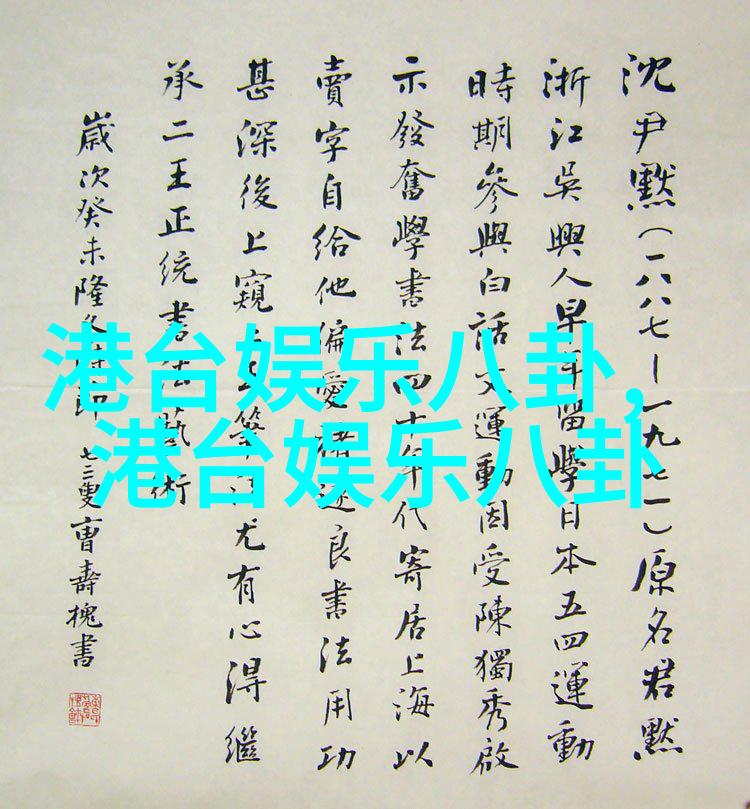 沈尹默（一八八七—一九七一）原名君默
浙江吳興人早年留學日本五四運動
時期參與白話文運動因受陳獨秀啟
示發奮學書法四十年代寄居上海以
賣字自給他偏愛褚遂良書法用功
甚深後上窺二王筆法尤有心得繼
承二王正統書法藝術
歲次癸未隆冬時節七三叟曹壽槐書
港台娱乐八卦，
港台娱乐八卦